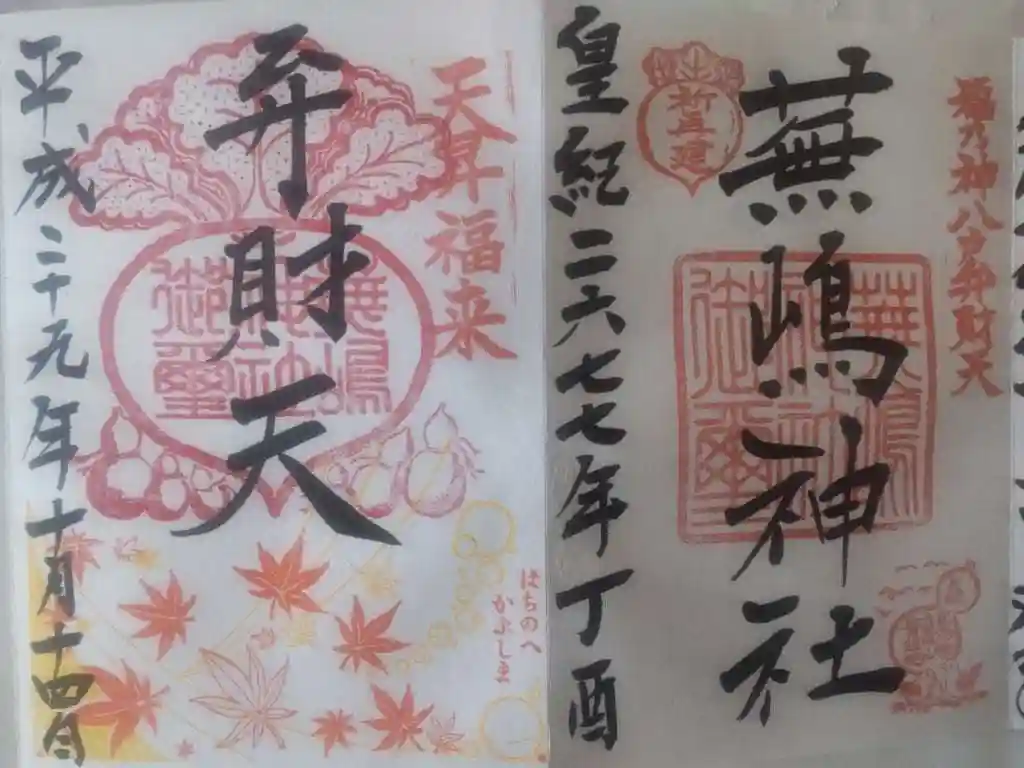 福乃神八戸弁財天
祈再建
蕪嶋神社
蕪嶋
神社
御璽
皇紀二六七七年丁酉
天昇福来
はちのへ
かぶしま
弁財天
蕪嶋
神社
御璽
平成二十九年十月十四日